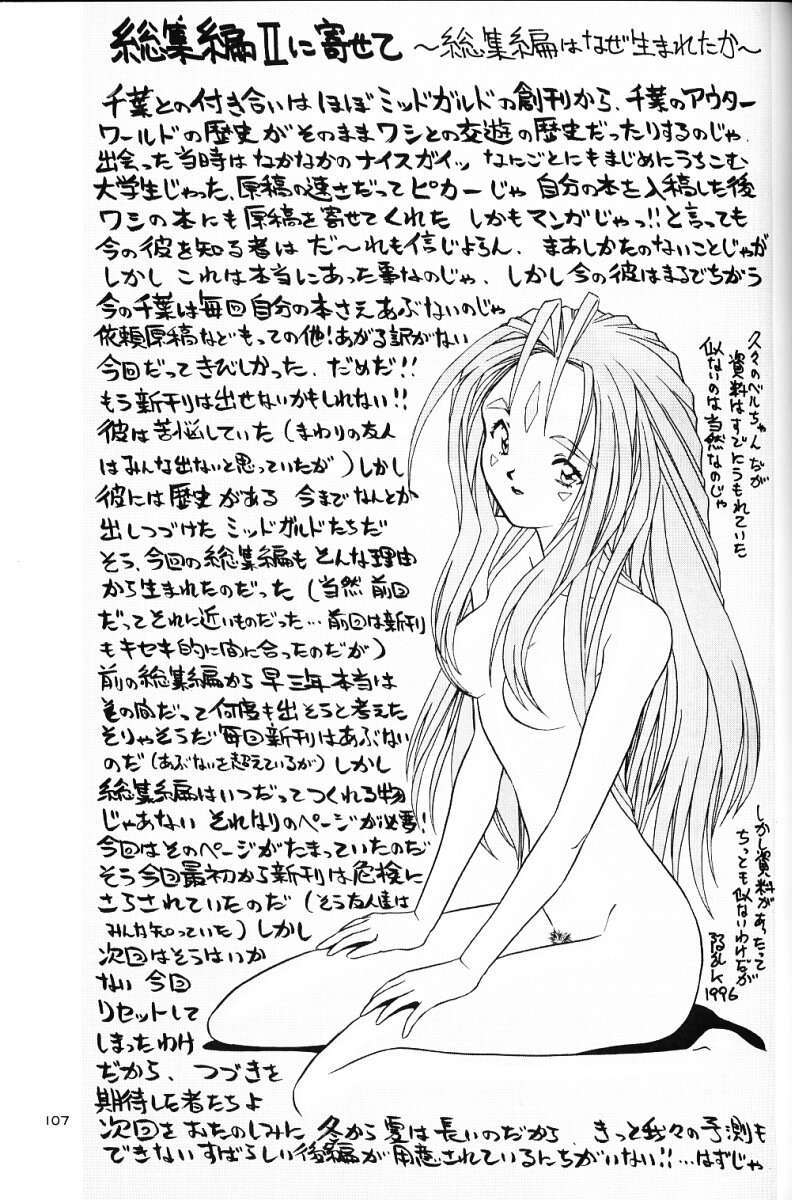 総集編Ⅱに寄せて ～総集編はなぜ生まれたか～
千葉との付き合いはほぼミッドガルドの創刊から、千葉のアウター
ワールドの歴史がそのままワシとの交遊の歴史だったりするのじゃ.
出会った当時はなかなかのナイスガイッ なにごとにもまじめにうちこむ
大学生じゃった、原稿の速さだってピカ一じゃ 自分の本を入稿した後
ワシの本にも原稿を寄せてくれた しかもマンガじゃっ!!と言っても
今の彼を知る者は だ〜れも信じよろん、まあしかたのないことじゃが
しかし これは本当にあった事なのじゃ、しかし今の彼はまるでちがう
今の千葉は毎回自分の本さえあぶないのじゃ
依頼原稿などもっての他!あがる訳がない
今回だってきびしかった、だめだ!!
もう新刊は出せないかもしれない!!
彼は苦悩していた(まわりの友人
はみんな出ないと思っていたが)しかし
彼には歴史がある 今までなんとか
出しつづけた ミッドガルドたちだ
そう、今回の総集編もそんな理由
から生まれたのだった(当然前回
だってそれに近いものだった…前回は新刊
もキセキ的に間に合ったのだが)
前の総集編から早三年本当は
その間だって何度も出そうと考えた
そりゃそうだ毎回新刊はあぶない
のだ(あぶないを超えているが)しかし
総集編はいつだってつくれる物
じゃあない それなりのページが必要!
今回はそのページがたまっていたのだ
そう今回最初から新刊は危険に
さらされていたのだ(そう友人達は
みんな知っていた)しかし
次回はそうはいか
ない今回
リセットして
しまったわけ
だから、つづきを
期待した者たちよ
次回をおたのしみに 冬から夏は長いのだから、きっと我々の予測も
できないすばらしい後編が用意されているにちがいない!!…はずじゃ
久々のベルちゃんだが
資料はすでにうもれていた
似ないのは当然なのじゃ
しかし資料があったって
ちっとも似ないわけだが
1996
107